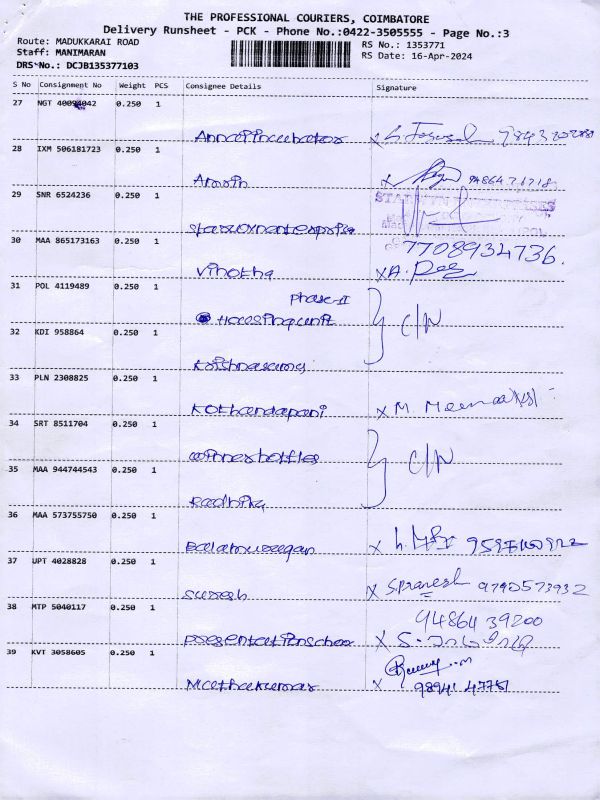 THE PROFESSIONAL COURIERS, COIMBATORE
Delivery Runsheet - PCK - Phone No.:0422-3505555 - Page No.:3
Route: MADUKKARAI ROAD
Staff: MANIMARAN
DRS No.: DCJB135377103
RS No.: 1353771
RS Date: 16-Apr-2024
S No Consignment No Weight PCS Consignee Details Signature
27 NGT 0.250 1
28 IXM 506181723 0.250 1
Amsin
29 SNR 6524236 0.250 1
30 MAA 865173163 0.250 1 7708934736.
Vinotha X A.
31 POL 4119489 0.250 1
Phase-II
Housingunit C/N
32 KDI 958864 0.250 1
Krishnasamy
33 PLN 2308825 0.250 1
Kothandapani X M Meenakshi
34 SRT 8511704 0.250 1
winnesbottles C/N
35 MAA 944744543 0.250 1
Radhika
36 MAA 573755750 0.250 1
Balamurugan X
37 UPT 4028828 0.250 1
Suresh X S.Pranesh 9790573932
38 MTP 5040117 0.250 1 94864 39200
X S.
39 KVT 3058605 0.250 1
Muthukumar X